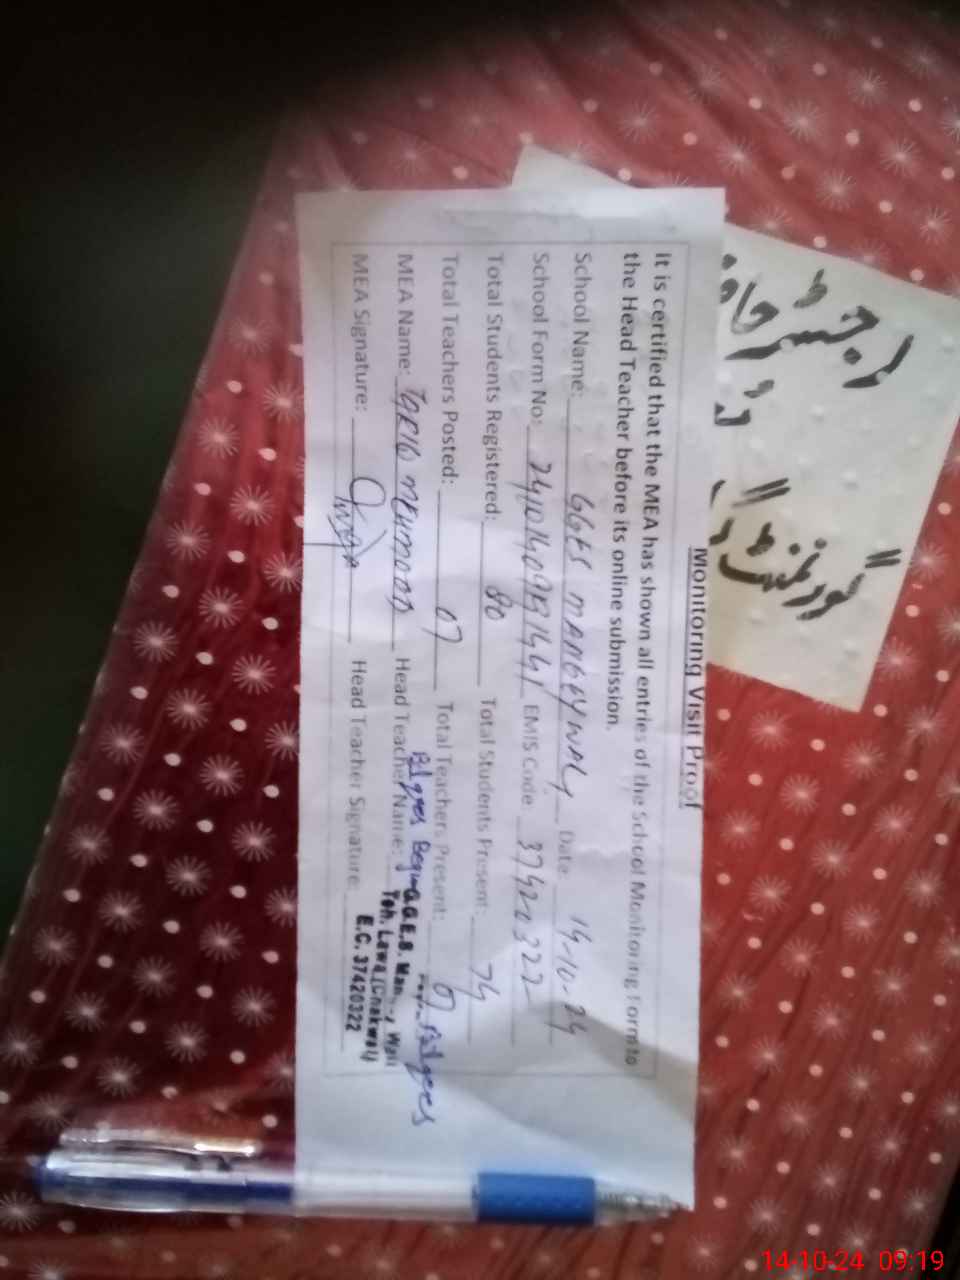 Monitoring Visit Proof
It is certified that the MEA has shown all entries of the School Monitoring Form to
the Head Teacher before its online submission.
School Name: GGES Date: 14-10-24
School Form No: EMIS Code 37420322
Total Students Registered: 80 Total Students Present: 74
Total Teachers Posted: 07 Total Teachers Present: 07
MEA Name: MEHMOOD Head Teacher Name: Bilqees Begum
MEA Signature: Head Teacher Signature: Bilqees
G.G.E.S. Man Wali
Teh. Lawa (Chakwal)
E.C. 37420322
گورنمنٹ
14-10-24 09:19